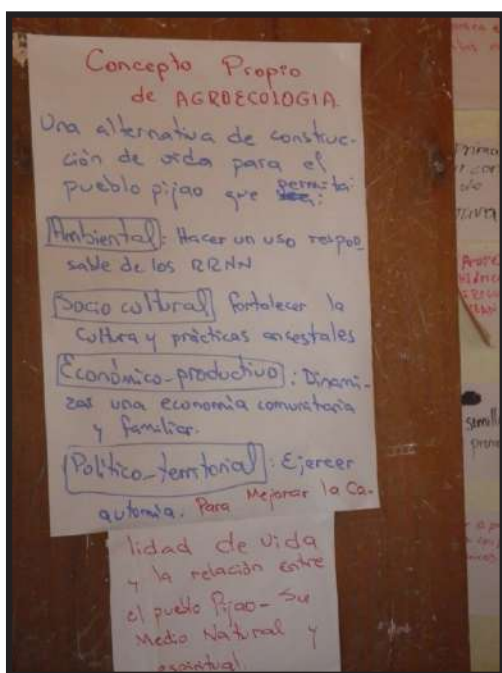 Concepto Propio
de AGROECOLOGIA
Una alternativa de construc-
ción de vida para el
pueblo pijao que permita:
Ambiental: Hacer un uso respon
sable de los RRNN
Socio cultural fortalecer la
cultura y prácticas ancestales
Económico-productivo: Dinami-
zar una economía comunitaria
y familiar.
Político-territorial: Ejercer
automia. Para Mejorar la Ca-
lidad de vida
y la relación entre
el pueblo Pijao- Su
Medio Natural y
espiritual.